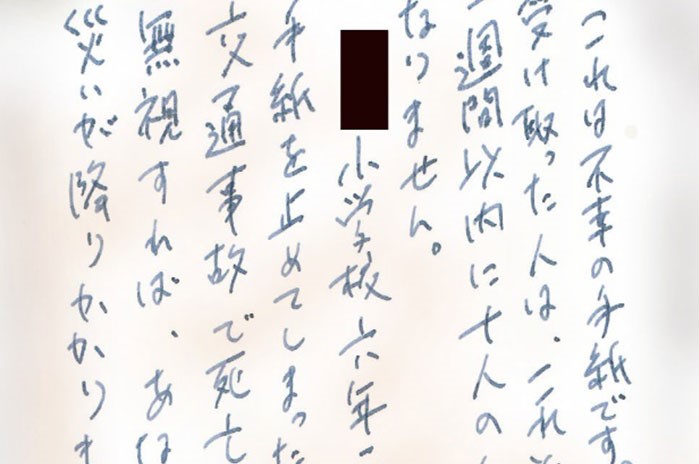 これは不幸の手紙です。
受け取ったん人は、これ
一週間以内に十人の
なりません。
小学校六年
手紙を止めてしまった
交通事故で死亡
無視すれば、あな
災いが降りかかりま